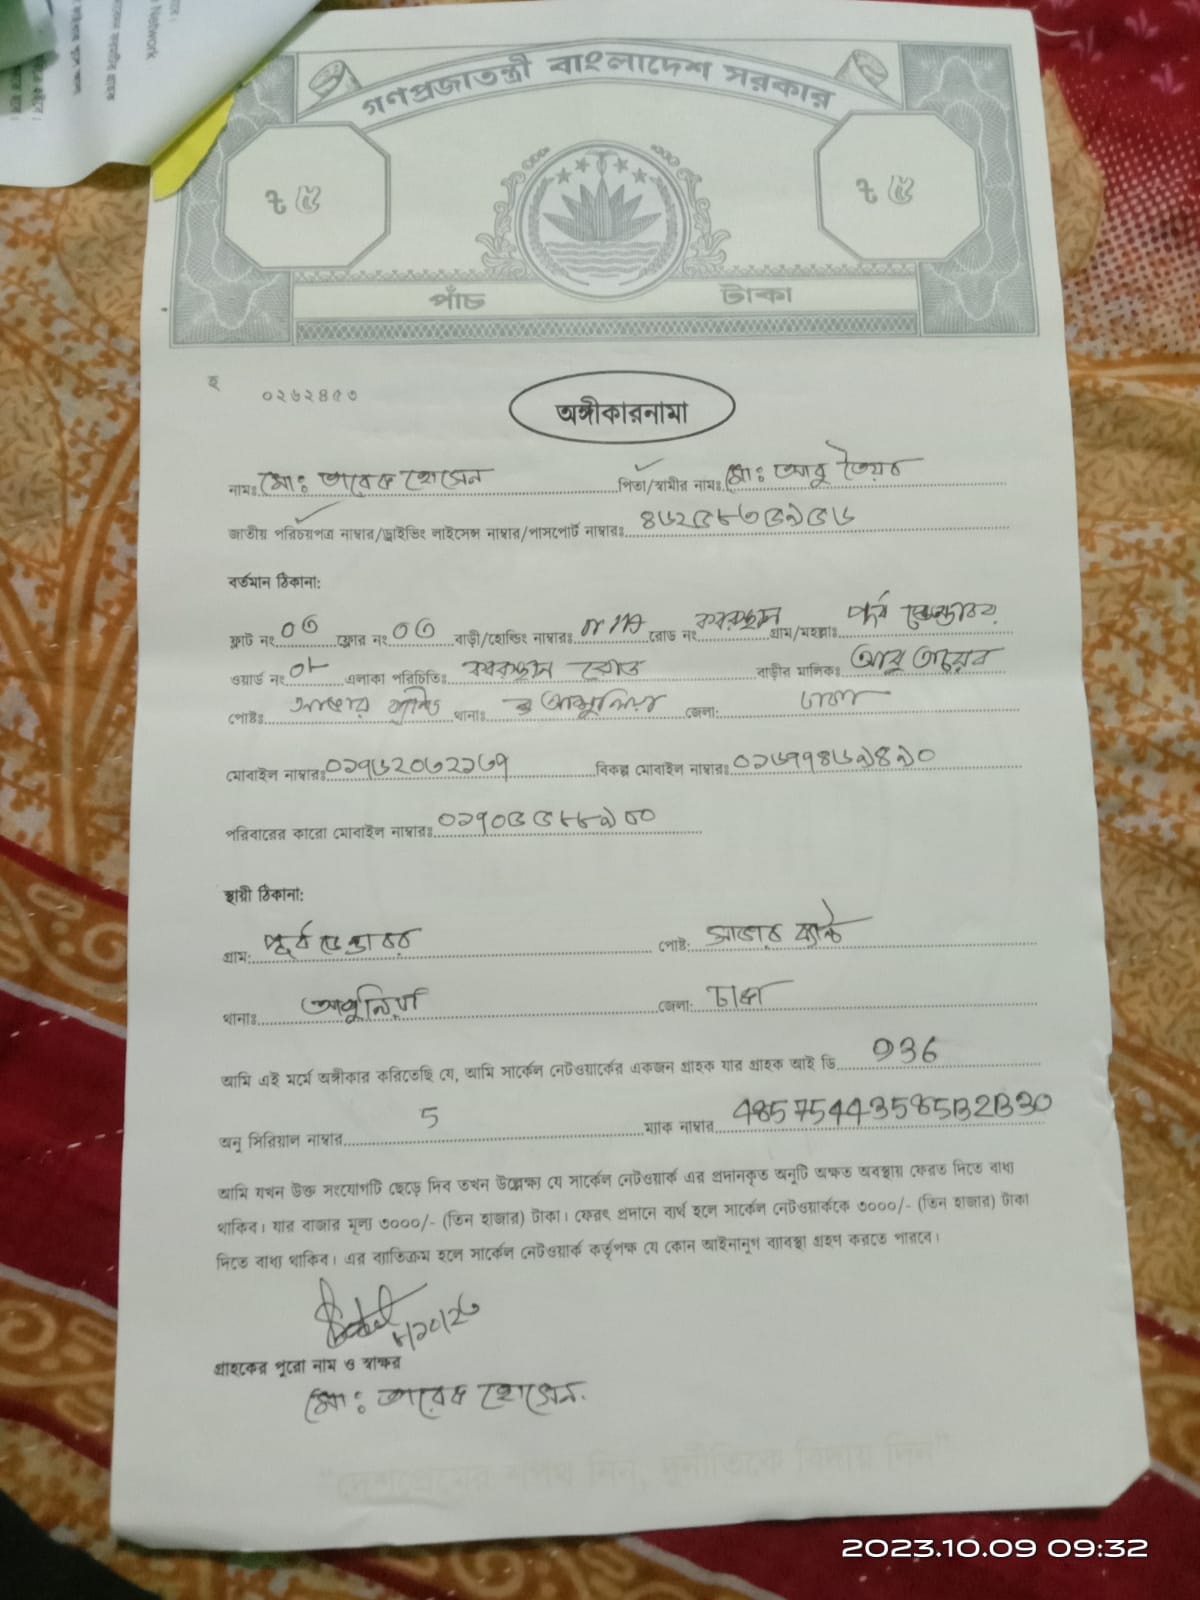 Network
গণপ্রজাতন্ত্রী বাংলাদেশ সরকার
৳ ৫ ৳ ৫
পাঁচ টাকা
হ ০২৬২৪৫৩
অঙ্গীকারনামা
নামঃ মোঃ তারেক হোসেন পিতা/স্বামীর নামঃ মোঃ আবু তৈয়ব
জাতীয় পরিচয়পত্র নাম্বার/ড্রাইভিং লাইসেন্স নাম্বার/পাসপোর্ট নাম্বারঃ
বর্তমান ঠিকানা:
ফ্লাট নং ০৩ ফ্লোর নং ০৩ বাড়ী/হোল্ডিং নাম্বারঃ রোড নং কবরস্থান গ্রাম/মহল্লাঃ পূর্ব
ওয়ার্ড নং ০৮ এলাকা পরিচিতিঃ কবরস্থান রোড বাড়ীর মালিকঃ আবু তায়েব
পোষ্টঃ থানাঃ আশুলিয়া জেলা: ঢাকা
মোবাইল নাম্বারঃ বিকল্প মোবাইল নাম্বারঃ
পরিবারের কারো মোবাইল নাম্বারঃ ০১৭০৫৫৮৮৯৮০
স্থায়ী ঠিকানা:
গ্রাম: পূর্ব পোষ্ট: সাভার ক্যান্ট
থানাঃ আশুলিয়া জেলা: ঢাকা
আমি এই মর্মে অঙ্গীকার করিতেছি যে, আমি সার্কেল নেটওয়ার্কের একজন গ্রাহক যার গ্রাহক আই ডি 936
অনু সিরিয়াল নাম্বার 5 ম্যাক নাম্বার 48575443585B2B30
আমি যখন উক্ত সংযোগটি ছেড়ে দিব তখন উল্লেক্ষ্য যে সার্কেল নেটওয়ার্ক এর প্রদানকৃত অনুটি অক্ষত অবস্থায় ফেরত দিতে বাধ্য
থাকিব। যার বাজার মূল্য ৩০০০/- (তিন হাজার) টাকা। ফেরৎ প্রদানে ব্যর্থ হলে সার্কেল নেটওয়ার্ককে ৩০০০/- (তিন হাজার) টাকা
দিতে বাধ্য থাকিব। এর ব্যতিক্রম হলে সার্কেল নেটওয়ার্ক কর্তৃপক্ষ যে কোন আইনানুগ ব্যাবস্থা গ্রহণ করতে পারবে।
৮/১০/২৩
গ্রাহকের পুরো নাম ও স্বাক্ষর
মোঃ তারেক হোসেন.
"দেশপ্রেমের শপথ নিন, দুর্নীতিকে বিদায় দিন"
2023.10.09 09:32